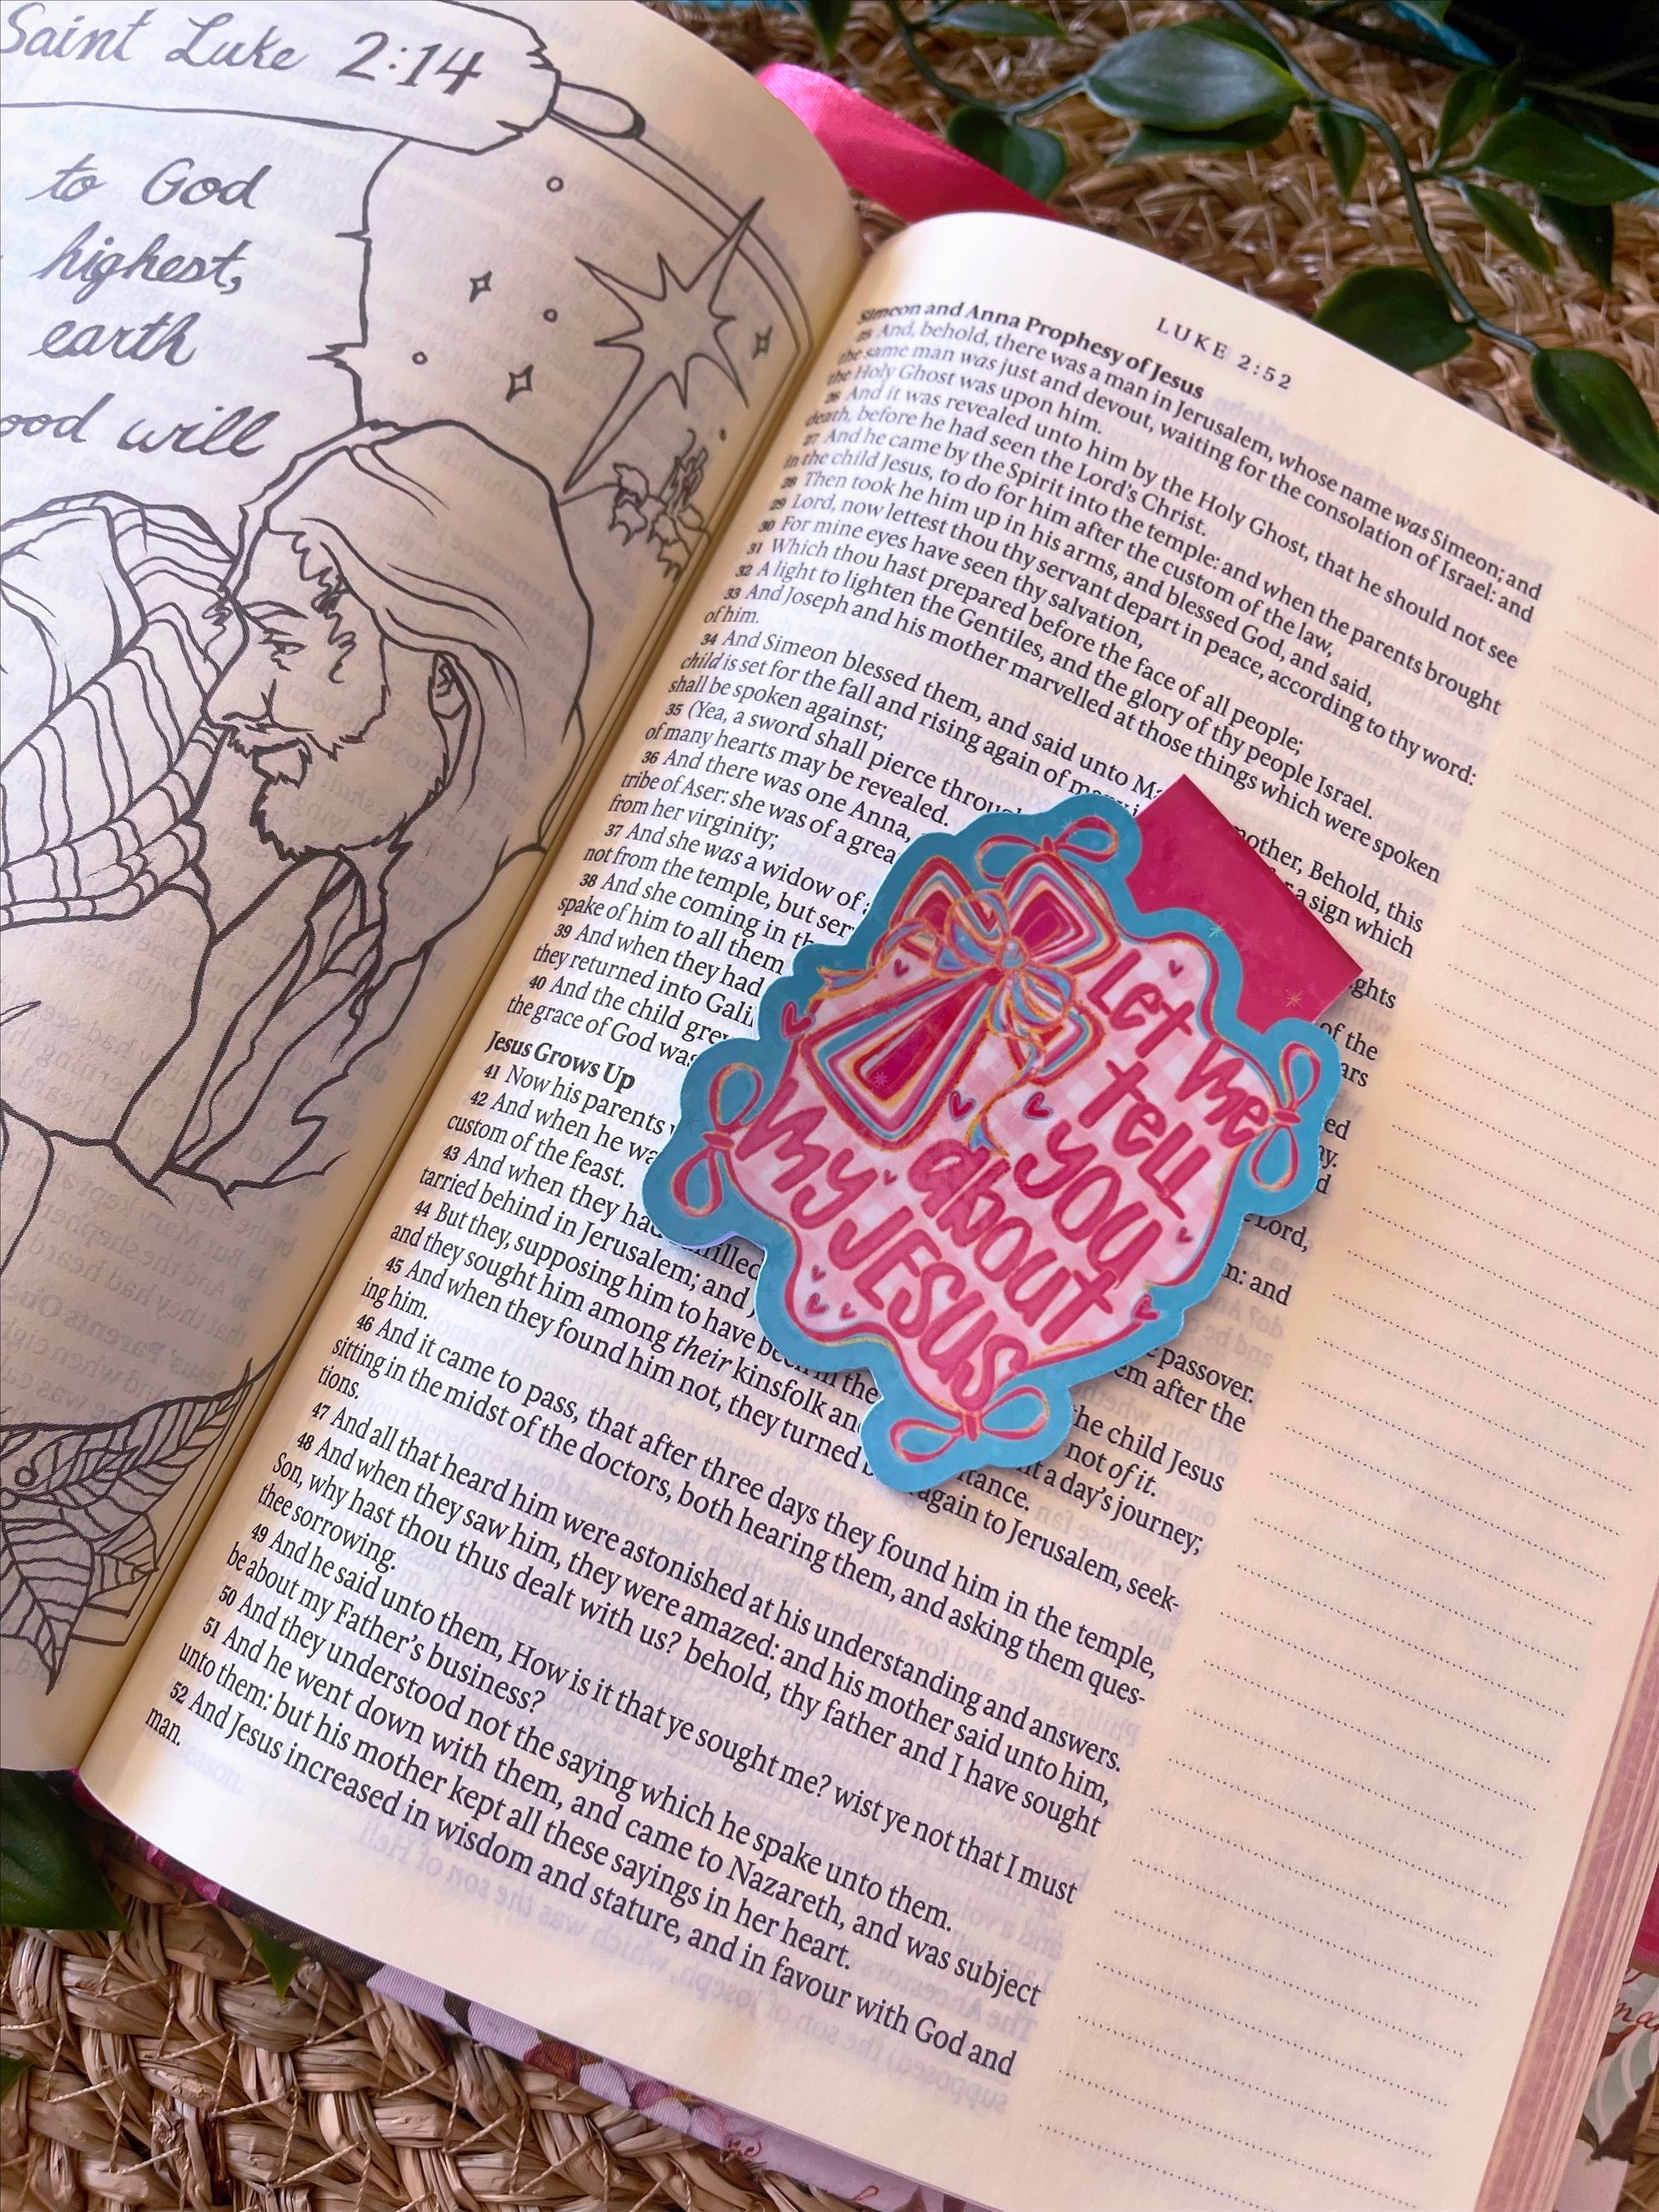 Saint Luke 2:14
to God
highest,
earth
ood will
LUKE 2:52
Simeon and Anna Prophesy of Jesus
25 And, behold, there was a man in Jerusalem, whose name was Simeon; and
the same man was just and devout, waiting for the consolation of Israel: and
the Holy Ghost was upon him.
26 And it was revealed unto him by the Holy Ghost, that he should not see
death, before he had seen the Lord's Christ.
27 And he came by the Spirit into the temple: and when the parents brought
in the child Jesus, to do for him after the custom of the law,
28 Then took he him up in his arms, and blessed God, and said,
29 Lord, now lettest thou thy servant depart in peace, according to thy word:
30 For mine eyes have seen thy salvation,
31 Which thou hast prepared before the face of all people;
32 A light to lighten the Gentiles, and the glory of thy people Israel.
33 And Joseph and his mother marvelled at those things which were spoken
of him.
34 And Simeon blessed them, and said unto M other, Behold, this
child is set for the fall and rising again of many i r a sign which
shall be spoken against;
35 (Yea, a sword shall pierce through ghts
of many hearts may be revealed.
36 And there was one Anna, of the
tribe of Aser: she was of a grea ars
from her virginity;
37 And she was a widow of a ed
not from the temple, but ser y.
38 And she coming in th d
spake of him to all them
39 And when they had Lord,
they returned into Gali
40 And the child grew m: and
the grace of God was
Jesus Grows Up
41 Now his parents passover.
42 And when he wa em after the
custom of the feast.
43 And when they had fulfilled the child Jesus
tarried behind in Jerusalem; and J not of it.
44 But they, supposing him to have been in the nt a day's journey;
and they sought him among their kinsfolk and tance.
45 And when they found him not, they turned b again to Jerusalem, seek-
ing him.
46 And it came to pass, that after three days they found him in the temple,
sitting in the midst of the doctors, both hearing them, and asking them ques-
tions.
47 And all that heard him were astonished at his understanding and answers.
48 And when they saw him, they were amazed: and his mother said unto him,
Son, why hast thou thus dealt with us? behold, thy father and I have sought
thee sorrowing.
49 And he said unto them, How is it that ye sought me? wist ye not that I must
be about my Father's business?
50 And they understood not the saying which he spake unto them.
51 And he went down with them, and came to Nazareth, and was subject
unto them: but his mother kept all these sayings in her heart.
52 And Jesus increased in wisdom and stature, and in favour with God and
man.
Let me
tell
you
about
my JESUS